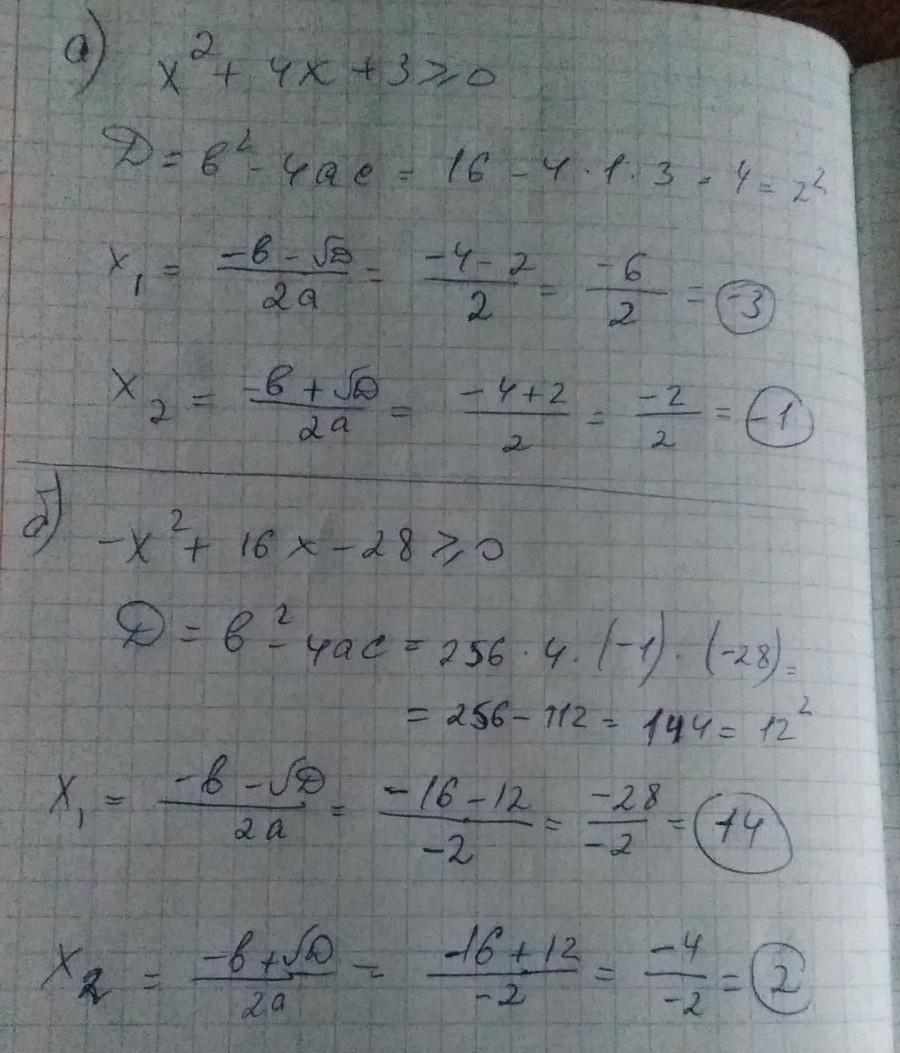 а) x² + 4x + 3 ⩾ 0
D = b² - 4ac = 16 - 4 · 1 · 3 = 4 = 2²
x₁ = (-b - √D)/(2a) = (-4 - 2)/2 = -6/2 = -3
x₂ = (-b + √D)/(2a) = (-4 + 2)/2 = -2/2 = -1
б) -x² + 16x - 28 ⩾ 0
D = b² - 4ac = 256 · 4 · (-1) · (-28) =
= 256 - 112 = 144 = 12²
x₁ = (-b - √D)/(2a) = (-16 - 12)/(-2) = -28/-2 = 14
x₂ = (-b + √D)/(2a) = (-16 + 12)/(-2) = -4/-2 = 2